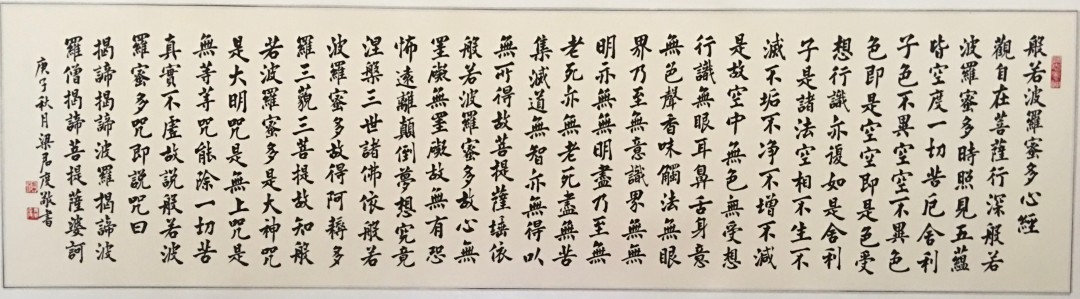 般若波羅蜜多心經
觀自在菩薩行深般若
波羅蜜多時照見五蘊
皆空度一切苦厄舍利
子色不異空空不異色
色即是空空即是色受
想行識亦復如是舍利
子是諸法空相不生不
滅不垢不净不增不減
是故空中無色無受想
行識無眼耳鼻舌身意
無色聲香味觸法無眼
界乃至無意識界無無
明亦無無明盡乃至無
老死亦無老死盡無苦
集滅道無智亦無得以
無可得故菩提薩埵依
般若波羅蜜多故心無
罣礙無罣礙故無有恐
怖遠離顛倒夢想究竟
涅槃三世諸佛依般若
波羅蜜多故得阿耨多
羅三藐三菩提故知般
若波羅蜜多是大神咒
是大明咒是無上咒是
無等等咒能除一切苦
真實不虛故說般若波
羅蜜多咒即說咒曰
揭諦揭諦波羅揭諦波
羅僧揭諦菩提薩婆訶
庚子秋月梁君度敬書